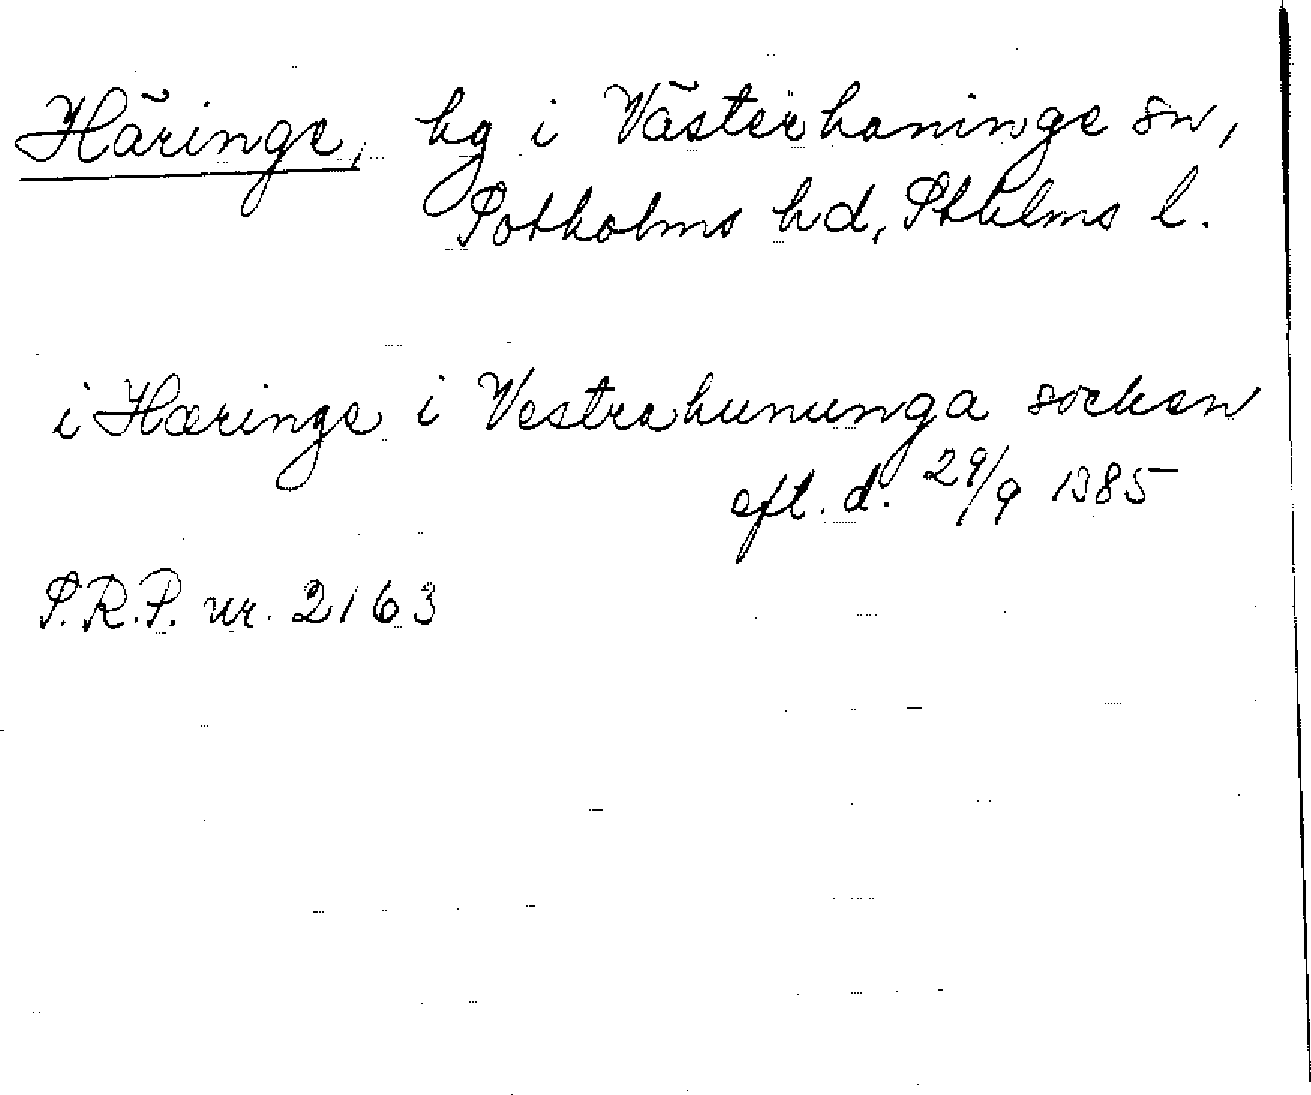 Häringe, hg i Västerhaninge sn,
Sotholms hd, Sthlms l.
i Hæringe i Vestrahununga socken
afl. d. 29/9 1385
S.R.P. nr. 2163